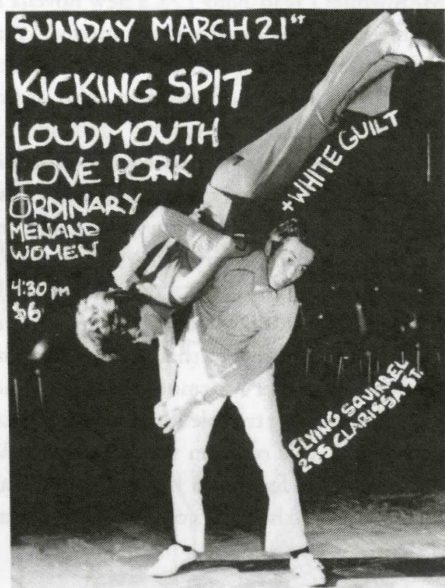 SUNDAY MARCH 21st
KICKING SPIT
LOUDMOUTH
LOVE PORK
ORDINARY
MEN AND
WOMEN
4:30 pm
$6
+ WHITE GUILT
FLYING SQUIRREL
285 CLARISSA ST.